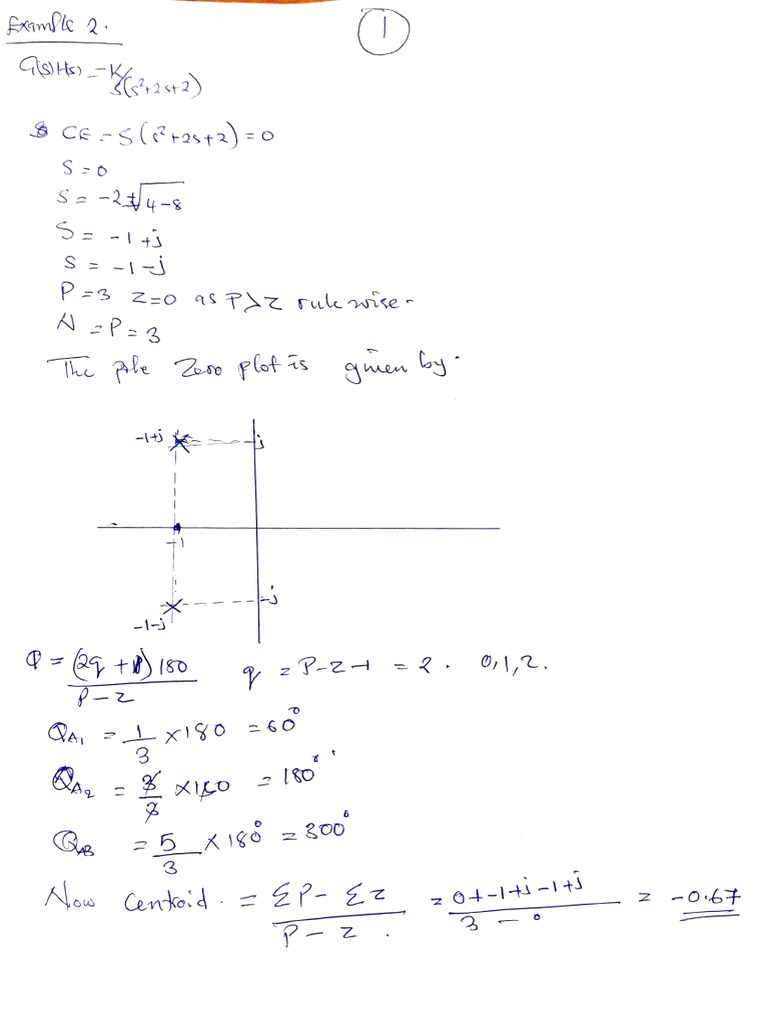 Example 2.
1
G(s)H(s) = K/s(s²+2s+2)
CE = S(s²+2s+2) = 0
S = 0
S = -2±√4-8
S = -1+j
S = -1-j
P = 3 z=0 as P>z rule wise.
N = P = 3
The pole Zero plot is given by.
-1+j j
-1
-1-j -j
Q = (2q+1)180/P-z q = P-z-1 = 2. 0,1,2.
QA1 = 1/3 ×180 = 60°
QA2 = 3/3 ×180 = 180°
QA3 = 5/3 × 180° = 300°
Now Centroid. = ΣP-Σz/P-z. = 0+-1+j-1+j/3-0 = -0.67